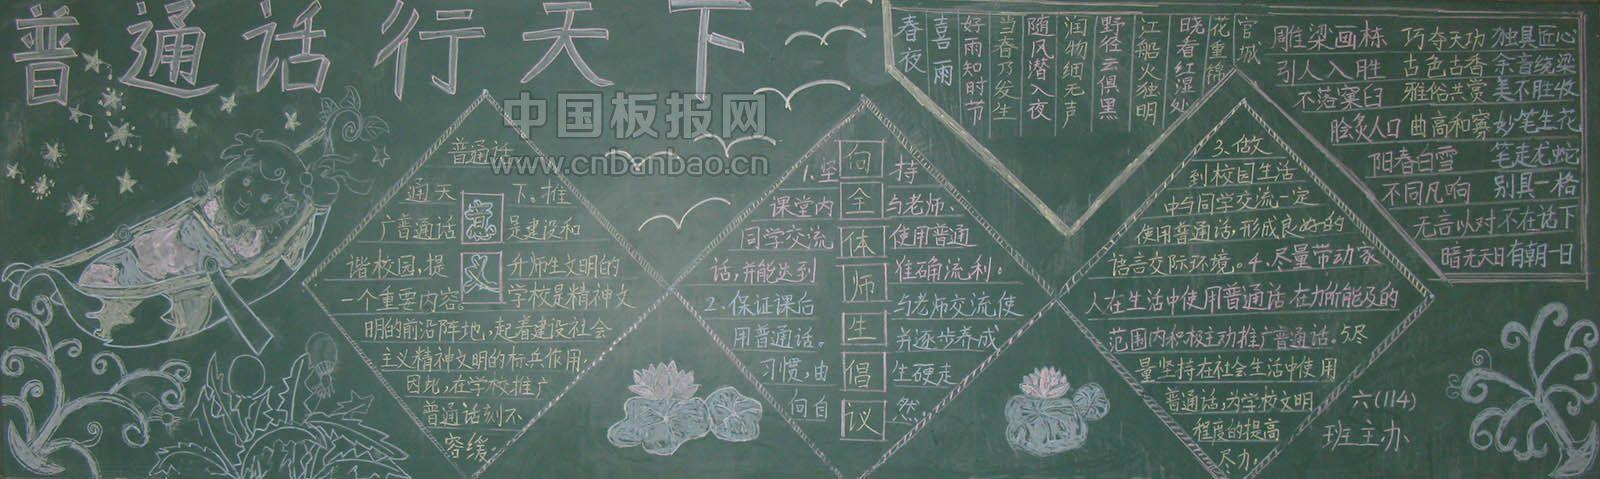 普通话行天下
中国板报网
www.cnbanbao.cn
普通话
通天下。推
广普通话是建设和
谐校园,提升师生文明的
一个重要内容。学校是精神文
明的前沿阵地,起着建设社会
主义精神文明的标兵作用;
因此,在学校推广
普通话刻不
容缓。
意义
向全体师生倡议
1.坚持
课堂内与老师、
同学交流使用普通
话,并能达到准确流利。
2.保证课后与老师交流使
用普通话。并逐步养成
习惯,由生硬走
向自然。
3.做
到校园生活
中与同学交流一定
使用普通话,形成良好的
语言交际环境。4、尽量带动家
人在生活中使用普通话,在力所能及的
范围内积极主动推广普通话。5尽
量坚持在社会生活中使用
普通话,为学校文明
程度的提高
尽力。
春夜
喜雨
好雨知时节
当春乃发生
随风潜入夜
润物细无声
野径云俱黑
江船火独明
晓看红湿处
花重锦
官城
雕梁画栋 巧夺天功 独具匠心
引人入胜 古色古香 余音绕梁
不落窠臼 雅俗共赏 美不胜收
脍炙人口 曲高和寡 妙笔生花
阳春白雪 笔走龙蛇
不同凡响 别具一格
无言以对 不在话下
暗无天日 有朝一日
六(114)
班主办